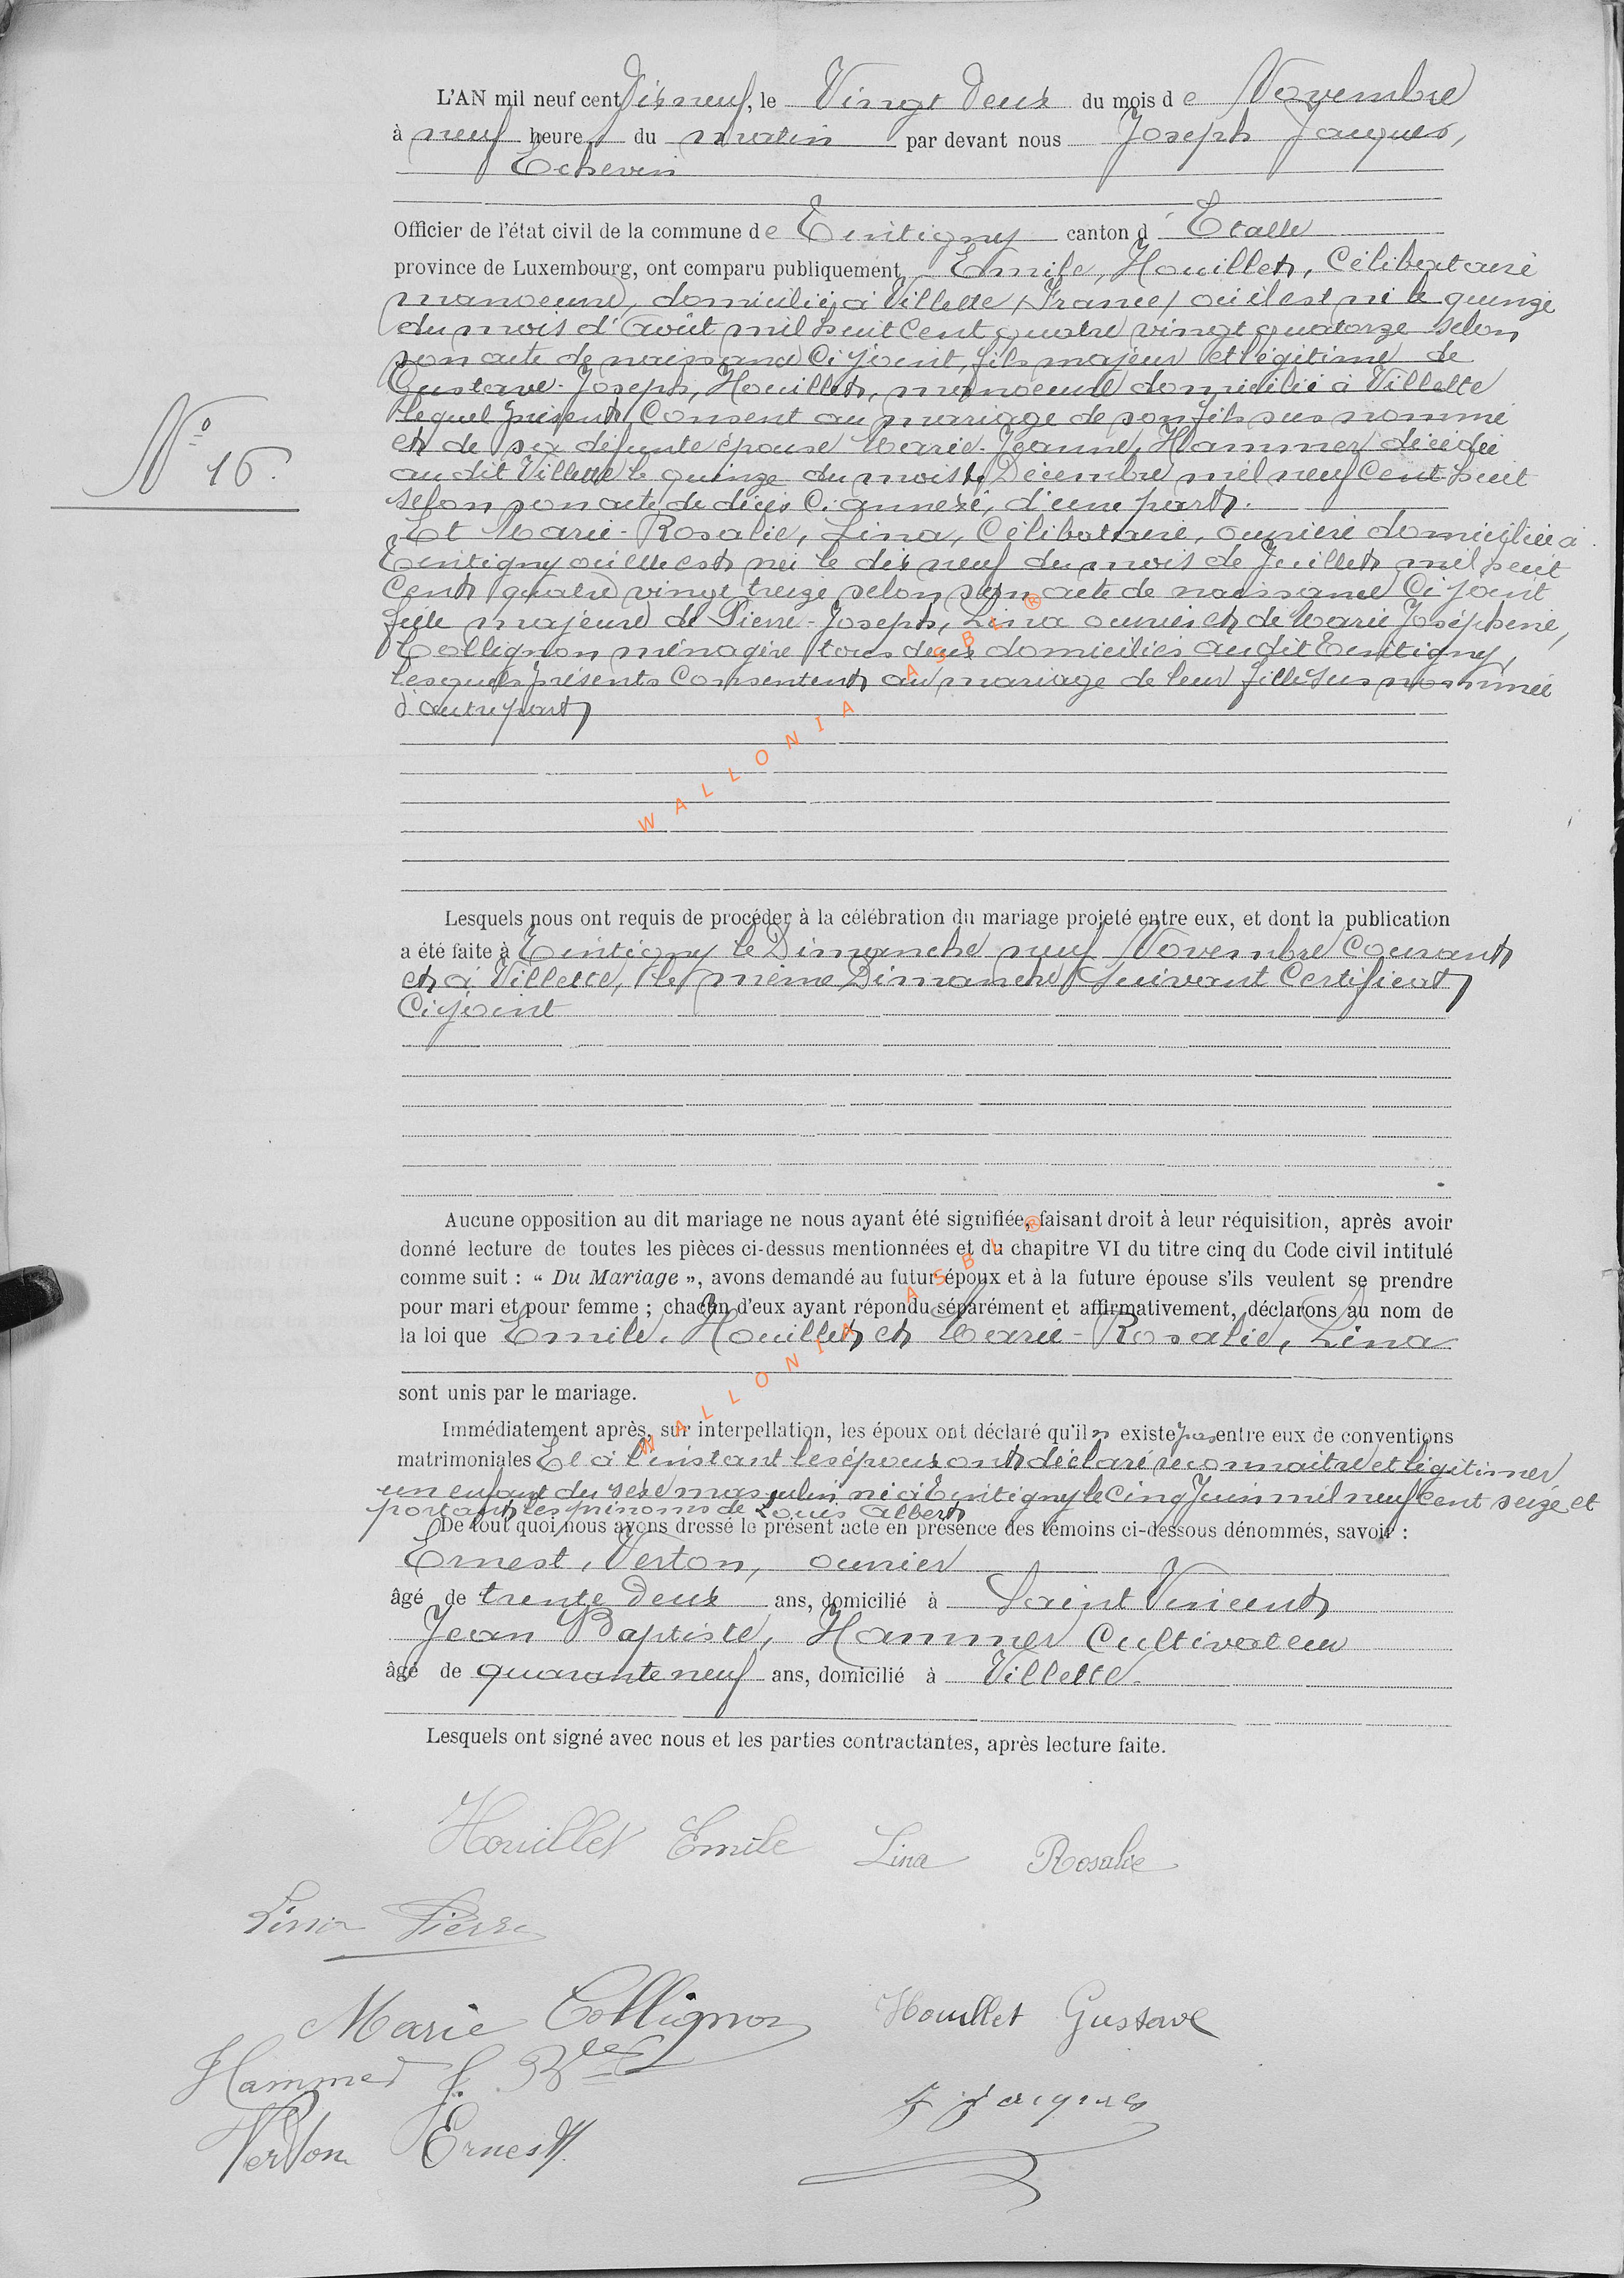 L'AN mil neuf cent Dix neuf, le Vingt Deux du mois de Novembre
à neuf heures du matin par devant nous Joseph Jacques,
Echevin
Officier de l'état civil de la commune de Tintigny canton d' Etalle
province de Luxembourg, ont comparu publiquement Emile, Houillet, Célibataire
manoeuvre, domicilié à Villette (France) où il est né le quinze
du mois d'Août mil huit cent quatre vingt quatorze selon
son acte de naissance Ci joint, fils majeur et légitime de
Gustave-Joseph, Houillet, manoeuvre domicilié à Villette
lequel présent Consent au mariage de son fils sus nommé
et de sa défunte épouse Marie-Jeanne, Hammer décédée
au dit Villette le quinze du mois de Décembre mil neuf Cent huit
selon son acte de décès Ci annexé, d'une part.
N° 16.
Et Marie-Rosalie, Lina, Célibataire, ouvrière domiciliée à
Tintigny où elle est née le dix neuf du mois de Juillet mil huit
Cent quatre vingt treize selon son acte de naissance Ci joint
fille majeure de Pierre-Joseph, Lina ouvrier et de Marie Joséphine,
Collignon ménagère tous deux domiciliés au dit Tintigny,
lesquels présents Consentent au mariage de leur fille sus nommée
d'autre part
WALLONIA ASBL ®
Lesquels nous ont requis de procéder à la célébration du mariage projeté entre eux, et dont la publication
a été faite à Tintigny le Dimanche neuf Novembre Courant
et à Villette, le même Dimanche Suivant Certificat
Ci joint
Aucune opposition au dit mariage ne nous ayant été signifiée, faisant droit à leur réquisition, après avoir
donné lecture de toutes les pièces ci-dessus mentionnées et du chapitre VI du titre cinq du Code civil intitulé
comme suit : « Du Mariage », avons demandé au futur époux et à la future épouse s'ils veulent se prendre
pour mari et pour femme ; chacun d'eux ayant répondu séparément et affirmativement, déclarons au nom de
la loi que Emile, Houillet et Marie-Rosalie, Lina
WALLONIA ASBL ®
sont unis par le mariage.
Immédiatement après, sur interpellation, les époux ont déclaré qu'il n existe pas entre eux de conventions
matrimoniales Et à l'instant les époux ont déclaré reconnaître et légitimer
un enfant du sexe masculin né à Tintigny le Cinq Juin mil neuf Cent seize et
portant les prénoms de Louis Albert
De tout quoi nous avons dressé le présent acte en présence des témoins ci-dessous dénommés, savoir :
Ernest, Verton, ouvrier
âgé de trente Deux ans, domicilié à Saint Vincent
Jean Baptiste, Hammer Cultivateur
âgé de quarante neuf ans, domicilié à Villette.
Lesquels ont signé avec nous et les parties contractantes, après lecture faite.
Houillet Emile Lina Rosalie
Lina Pierre
Marie Collignon Houillet Gustave
Hammer J. Bte
J Jacques
Verton Ernest